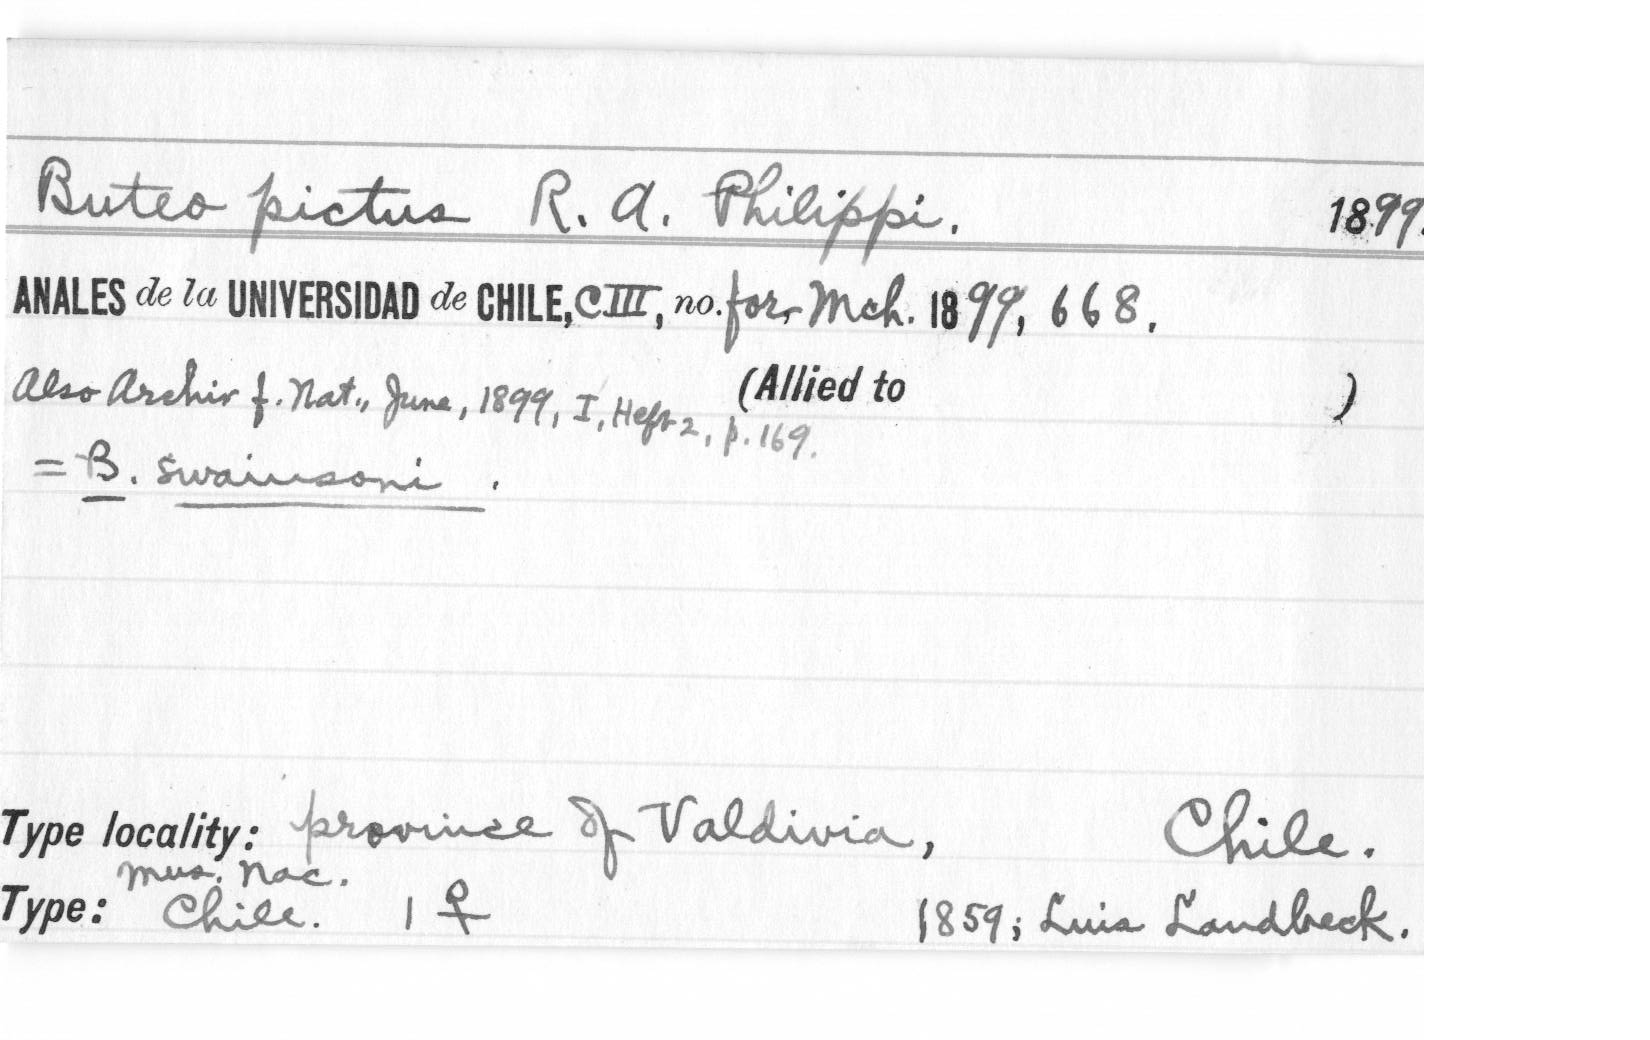 Buteo pictus R. A. Philippi. 1899.
ANALES de la UNIVERSIDAD de CHILE, CIII, no. for Mch. 1899, 668.
Also Archiv f. Nat., June, 1899, I, Heft 2, p. 169. (Allied to )
= B. swainsoni .
Type locality: province of Valdivia, Chile.
Mus. Nac.
Type: Chile. 1 ♀ 1859; Luis Landbeck.